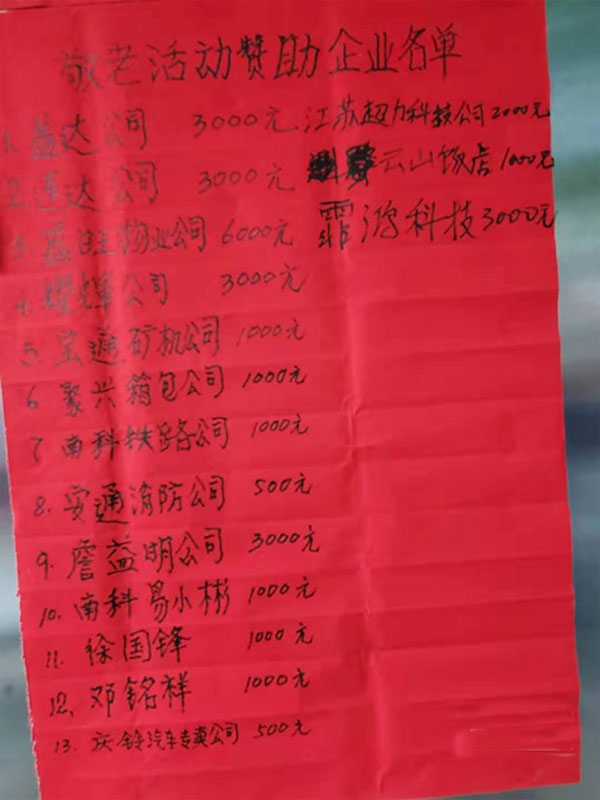 敬老活动赞助企业名单
1. 益达公司 3000元
2. 连达公司 3000元
3. 益旺物业公司 6000元
4. 耀辉公司 3000元
5. 宝通矿机公司 1000元
6 聚兴箱包公司 1000元
7 南科铁路公司 1000元
8. 安通消防公司 500元
9. 詹益明公司 3000元
10. 南科易小彬 1000元
11. 徐国锋 1000元
12. 邓铭祥 1000元
13. 庆铃汽车专卖公司 500元
江苏超力科技公司2000元
云山饭店1000元
霏鸿科技3000元